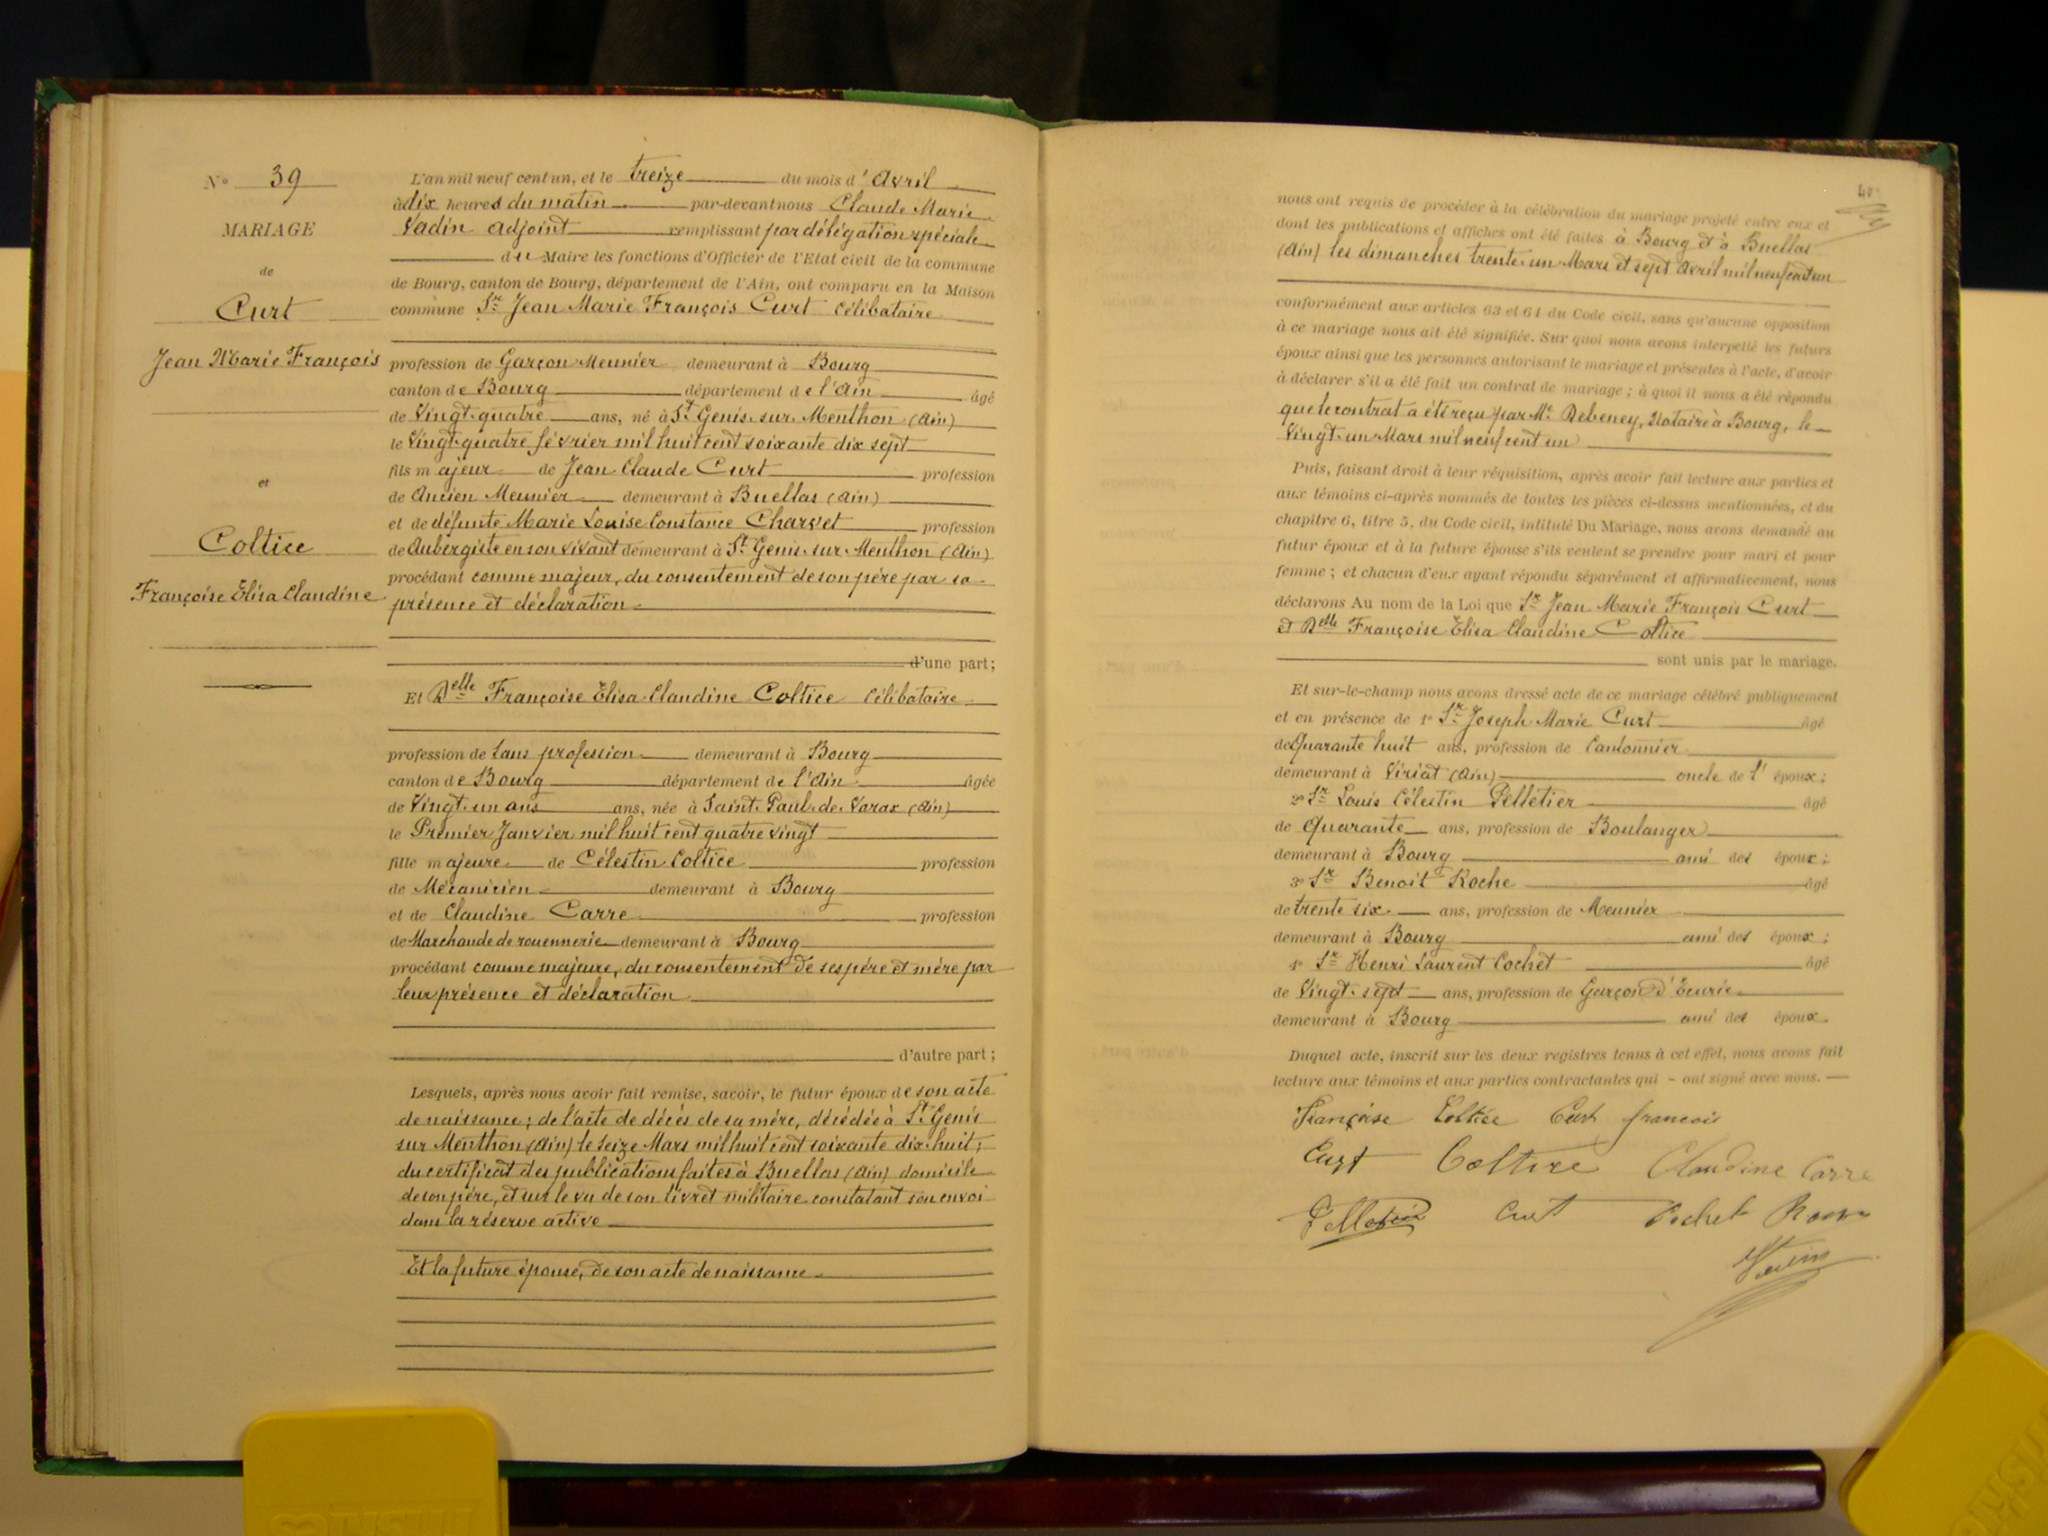 N° 39
MARIAGE
de
Curt
Jean Marie François
et
Coltice
Françoise Elisa Claudine
L'an mil neuf cent un, et le treize du mois d'Avril
à dix heures du matin par-devant nous Claude Marie
Vadin adjoint remplissant par délégation spéciale
du Maire les fonctions d'Officier de l'Etat civil de la commune
de Bourg, canton de Bourg, département de l'Ain, ont comparu en la Maison
commune Sr Jean Marie François Curt Célibataire
profession de Garçon Meunier demeurant à Bourg
canton de Bourg département de l'Ain âgé
de Vingt-quatre ans, né à St Genis-sur-Menthon (Ain)
le Vingt-quatre février mil huit cent soixante dix sept
fils majeur de Jean Claude Curt profession
de Ancien Meunier demeurant à Buellas (Ain)
et de défunte Marie Louise Constance Charvet profession
de Aubergiste en son vivant demeurant à St Genis-sur-Menthon (Ain)
procédant comme majeur, du consentement de son père par sa
présence et déclaration
d'une part;
Et Delle Françoise Elisa Claudine Coltice Célibataire
profession de Sans profession demeurant à Bourg
canton de Bourg département de l'Ain âgée
de Vingt-un ans ans, née à Saint-Paul-de-Varax (Ain)
le Premier Janvier mil huit cent quatre vingt
fille majeure de Célestin Coltice profession
de Mécanicien demeurant à Bourg
et de Claudine Carre profession
de Marchande de rouennerie demeurant à Bourg
procédant comme majeure, du consentement de ses père et mère par
leur présence et déclaration
d'autre part;
Lesquels, après nous avoir fait remise, savoir, le futur époux de son acte
de naissance; de l'acte de décès de sa mère, décédée à St Genis
sur Menthon (Ain) le Seize Mars mil huit cent soixante dix-huit;
du certificat des publications faites à Buellas (Ain) domicile
de son père, et sur le vu de son livret militaire constatant son envoi
dans la réserve active
Et la future épouse, de son acte de naissance
40
nous ont requis de procéder à la célébration du mariage projeté entre eux et
dont les publications et affiches ont été faites à Bourg et à Buellas
(Ain) les dimanches trente-un Mars et sept Avril mil neuf cent un
conformément aux articles 63 et 64 du Code civil, sans qu'aucune opposition
à ce mariage nous ait été signifiée. Sur quoi nous avons interpellé les futurs
époux ainsi que les personnes autorisant le mariage et présentes à l'acte, d'avoir
à déclarer s'il a été fait un contrat de mariage; à quoi il nous a été répondu
que le contrat a été reçu par Me Debeney, Notaire à Bourg, le
Vingt-un Mars mil neuf cent un
Puis, faisant droit à leur réquisition, après avoir fait lecture aux parties et
aux témoins ci-après nommés de toutes les pièces ci-dessus mentionnées, et du
chapitre 6, titre 5, du Code civil, intitulé Du Mariage, nous avons demandé au
futur époux et à la future épouse s'ils veulent se prendre pour mari et pour
femme; et chacun d'eux ayant répondu séparément et affirmativement, nous
déclarons Au nom de la Loi que Sr Jean Marie François Curt
et Delle Françoise Elisa Claudine Coltice
sont unis par le mariage.
Et sur-le-champ nous avons dressé acte de ce mariage célébré publiquement
et en présence de 1° Sr Joseph Marie Curt âgé
de Quarante huit ans, profession de Cantonnier
demeurant à Viriat (Ain) oncle de l'époux;
2° Sr Louis Célestin Pelletier âgé
de Quarante ans, profession de Boulanger
demeurant à Bourg ami des époux;
3° Sr Benoit Roche âgé
de trente six ans, profession de Meunier
demeurant à Bourg ami des époux;
4° Sr Henri Laurent Cochet âgé
de Vingt-sept ans, profession de Garçon d'Ecurie
demeurant à Bourg ami des époux.
Duquel acte, inscrit sur les deux registres tenus à cet effet, nous avons fait
lecture aux témoins et aux parties contractantes qui - ont signé avec nous.
Françoise Coltice Curt francois
Curt Coltice Claudine Carre
Pelletier Curt Cochet Roche
Vadin